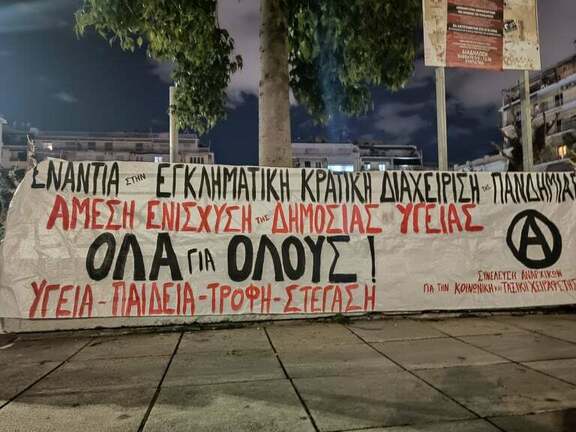 ΕΝΑΝΤΙΑ ΣΤΗΝ ΕΓΚΛΗΜΑΤΙΚΗ ΚΡΑΤΙΚΗ ΔΙΑΧΕΙΡΙΣΗ ΤΗΣ ΠΑΝΔΗΜΙΑΣ
ΑΜΕΣΗ ΕΝΙΣΧΥΣΗ ΤΗΣ ΔΗΜΟΣΙΑΣ ΥΓΕΙΑΣ
ΟΛΑ ΓΙΑ ΟΛΟΥΣ!
ΥΓΕΙΑ-ΠΑΙΔΕΙΑ-ΤΡΟΦΗ-ΣΤΕΓΑΣΗ
Α
ΣΥΝΕΛΕΥΣΗ ΑΝΑΡΧΙΚΩΝ
ΓΙΑ ΤΗΝ ΚΟΙΝΩΝΙΚΗ ΚΑΙ ΤΑΞΙΚΗ ΧΕΙΡΑΦΕΤΗΣΗ